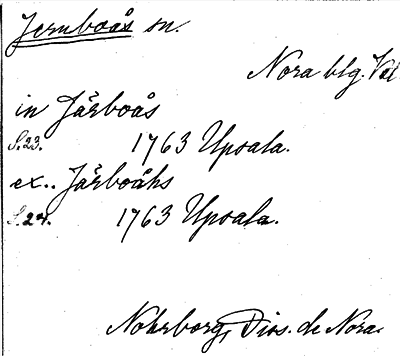 Jernboås sn.
Nora blg. Vstl
in Järboås
S.23. 1763 Upsala.
ex.. Järboåhs
S.24. 1763 Upsala.
Nohrborg, Diss. de Nora.